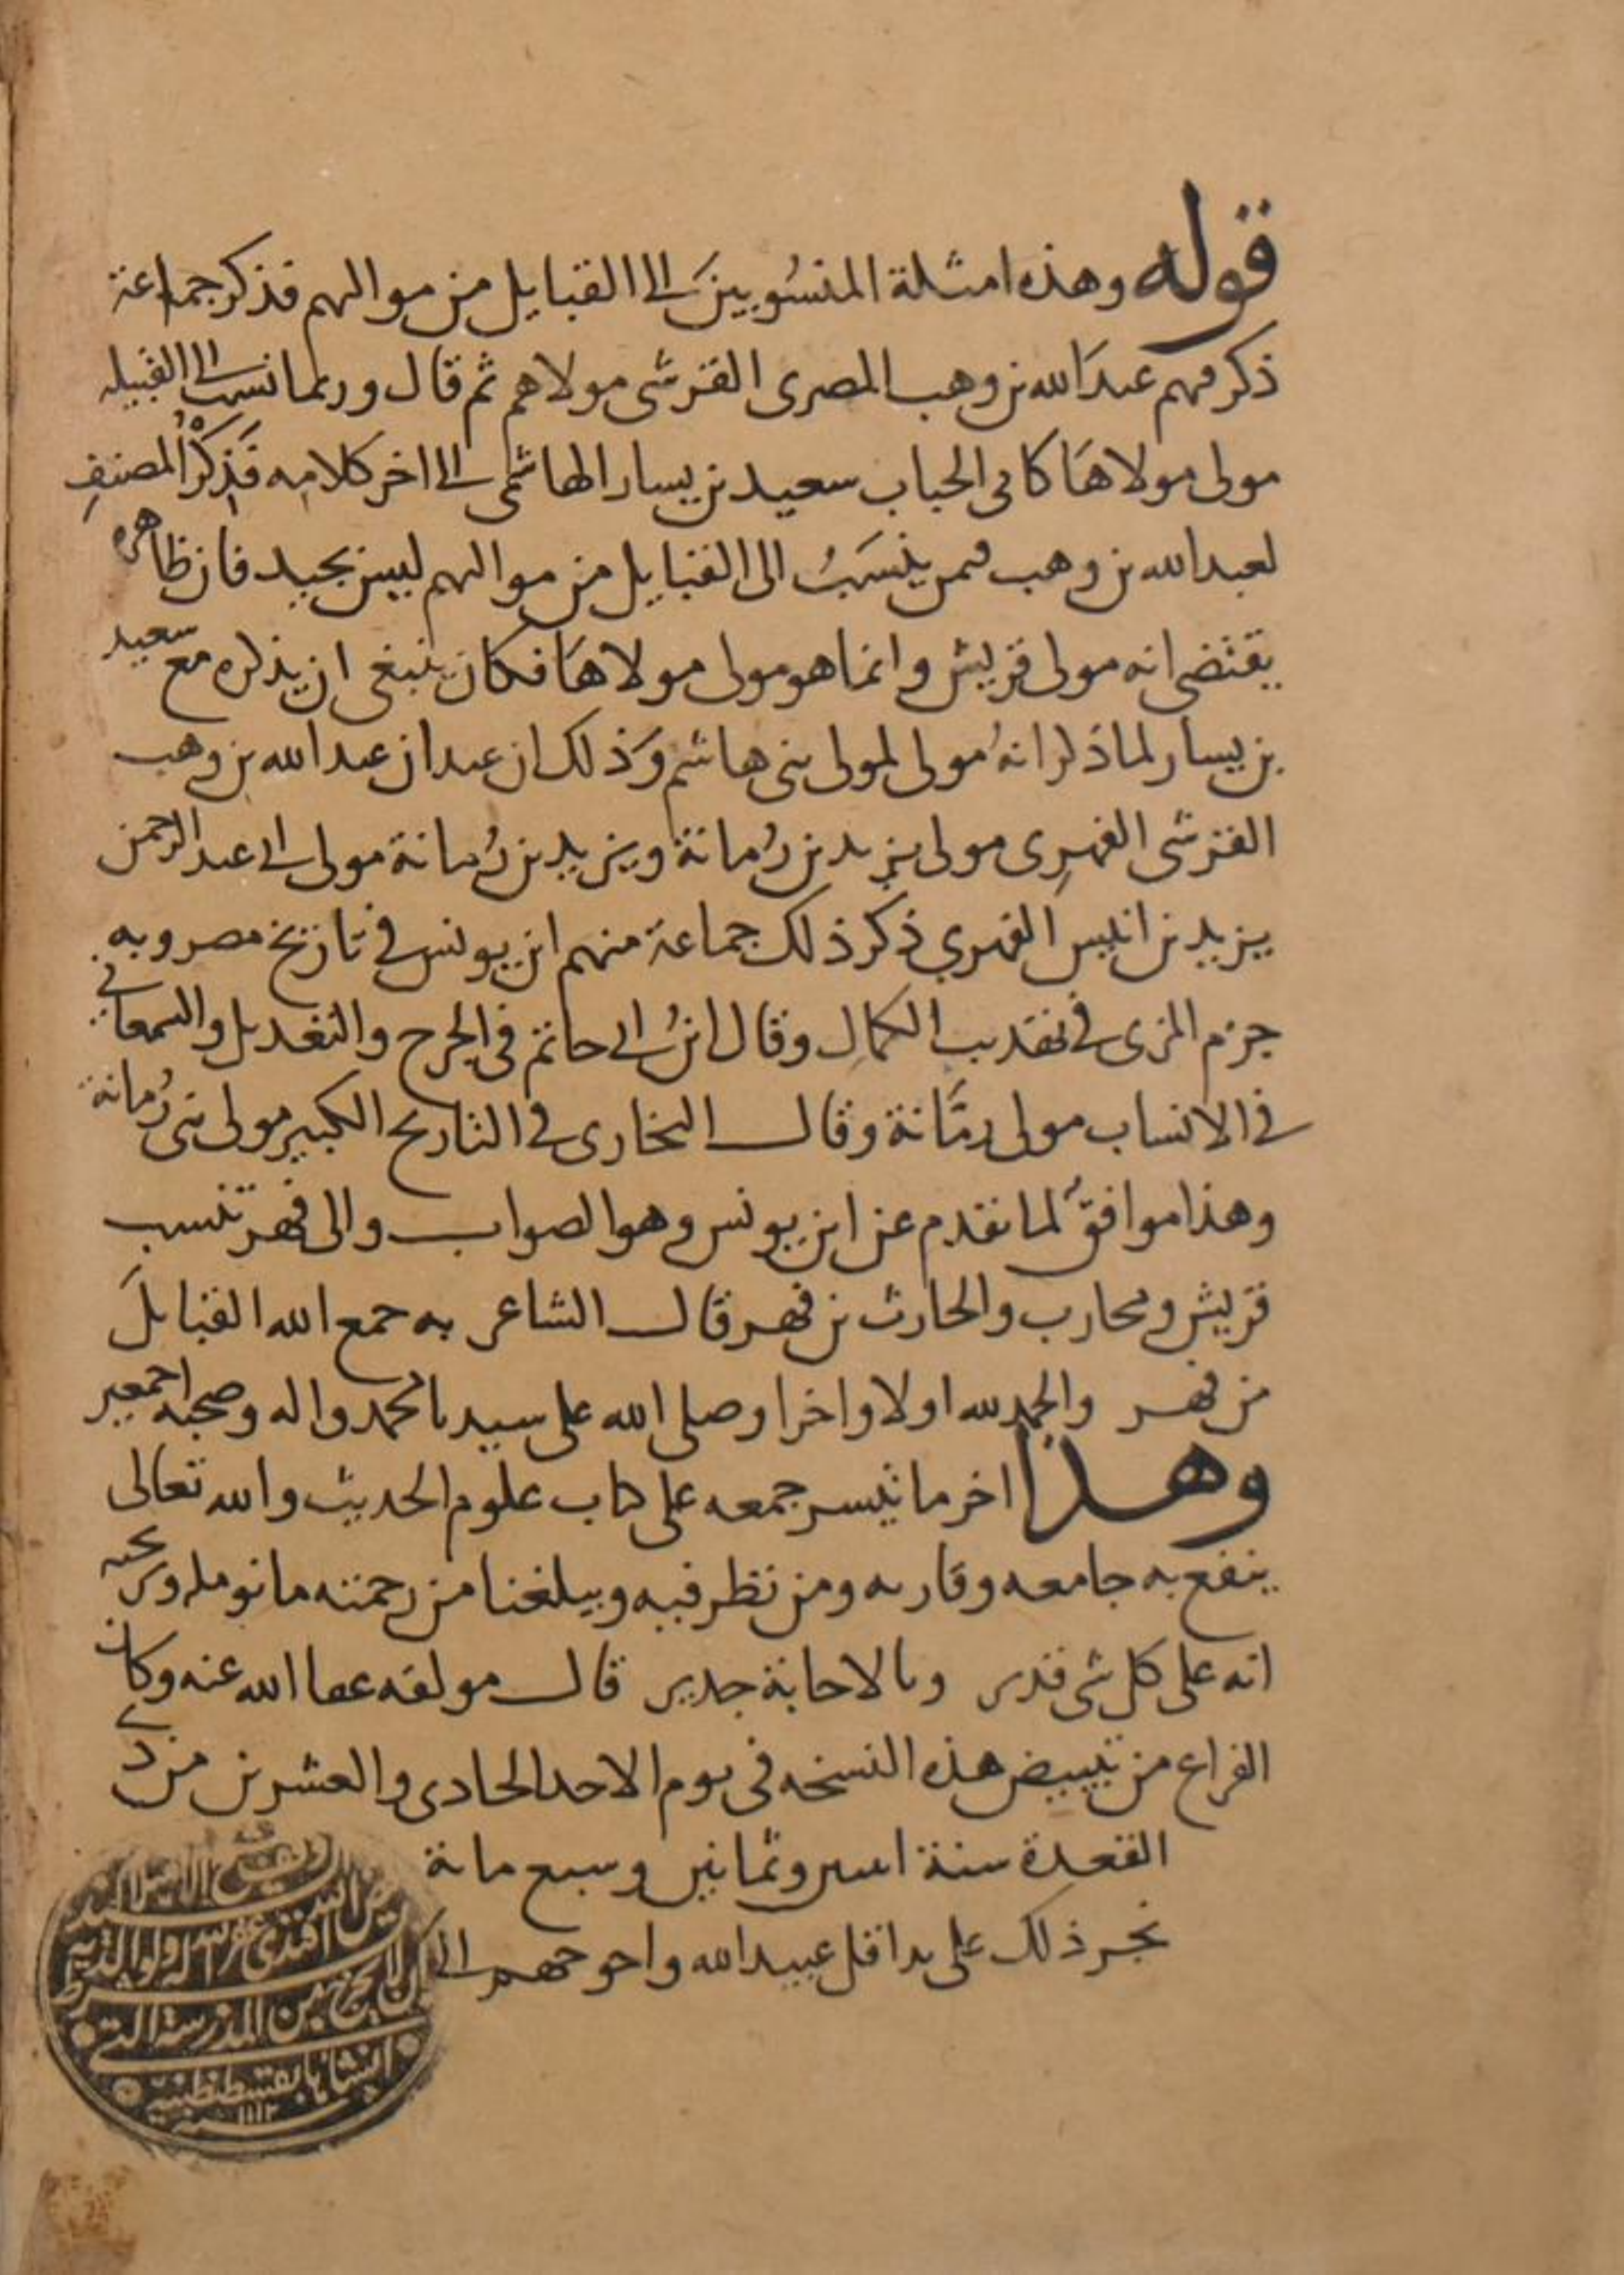 قوله وهذه امثلة المنسُوبينَ الى القبايل من مواليهم فذكر جماعة
ذكر منهم عبدَ الله بن وهب المصرى القرشى مولاهم ثم قال وربما نسب الى القبيله
مولى مولاهَا كابى الحباب سعيد بن يسار الهاشمى الى اخر كلامه فَذِكْرُ المصنفِ
لعبد الله بن وهب فيمن ينسَبُ الى القبايل من مواليهم ليس بجيد فان ظاهره
يقتضى انه مولى قريش وانما هو مولى مولاهَا فكان ينبغى ان يذكره مع سعيد
بن يسار لما ذكر انهُ مولى لمولى بنى هاشم وَذلك ان عبدان عبد الله بن وهب
القرشى الفهرِى مولى يزيد بن رُمانة ويزيد بن رُمانة مولى ابى عبد الرحمن
يزيد بن انيس الفهري ذكر ذلك جماعة منهم ابن يونس فى تاريخ مصر وبه
جزم المزى فى تهذيب الكمال وقال ابنُ ابى حاتم فى الجرح والتعديل والسمعانى
فى الانساب مولى رمَّانة وقال البخارى فى التاريخ الكبير مولى بنى رُمانة
وهذا موافقٌ لما تقدم عن ابن يونس وهو الصواب والى فهر تنسب
قريش ومحارب والحارث بن فهر قال الشاعر به جمع الله القبايلَ
من فهر والحمد لله اولا واخرا وصلى الله على سيدنا محمد واله وصحبه اجمعين
وهذا اخر ما تيسر جمعه على كتاب علوم الحديث والله تعالى
ينفع به جامعه وقاريه ومن نظر فيه ويبلغنا من رحمته ما نومله ونرتجيه
انه على كل شى قدير وبالاجابة جدير قال مولفه عفا الله عنه وكان
الفراغ من تبييض هذه النسخه فى يوم الاحد الحادى والعشرين من ذى
القعدة سنة اثنين وثمانين وسبع ماية
نجز ذلك على يد اقل عبيد الله واحوجهم الى
المدرسة التى
انشاها بقسطنطينية
١١١٢